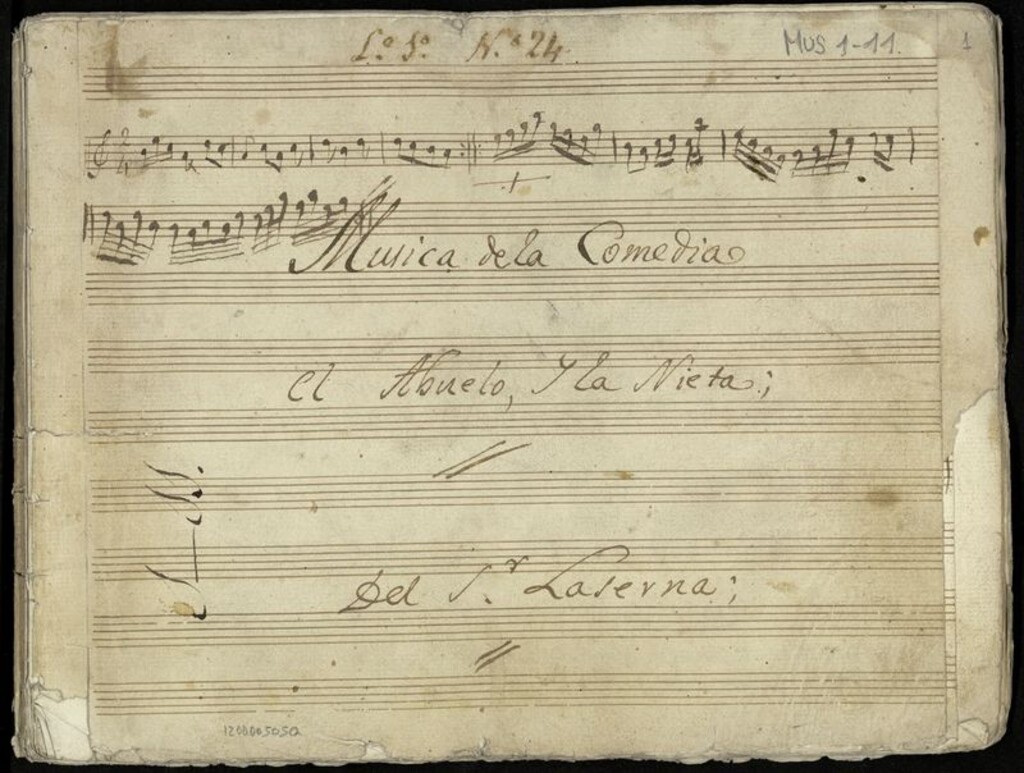 L.º J.º N.º 24.
MUS 1-11.
1
Musica de la Comedia
el Abuelo, Y la Nieta;
Del S.r Laserna;
1200005050